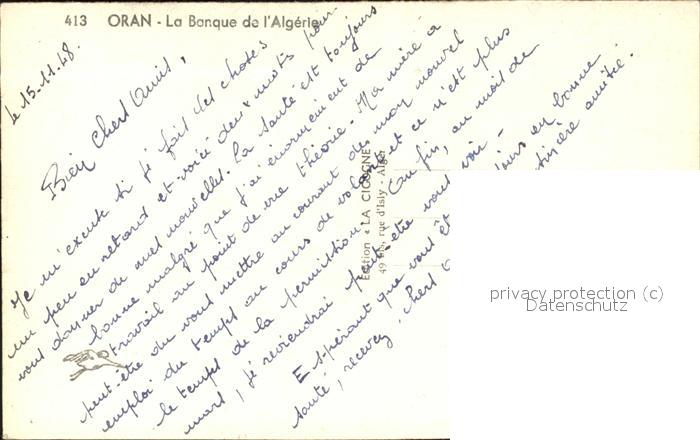 413 ORAN - La Banque de l'Algérie
le 15.11.48.
Bien Chers Amis,
Je m'excuse si je fais les choses
un peu en retard et voici deux mots pour
vous donner de mes nouvelles. La santé est toujours
bonne malgré que j'ai énormément de
travail au point de vue théorie. Ma mère a
peut-être du vous mettre au courant de mon nouvel
emploi du temps au cours de volant et ce n'est plus
le temps de la permission. Enfin, au mois de
mars, je reviendrai peut-être vous voir -
Espérant que vous êt jours en bonne
santé, recevez, chers sincère amitié.
Edition « LA CICOGNE »
49 bis, rue d'Isly - Alger
privacy protection (c)
Datenschutz